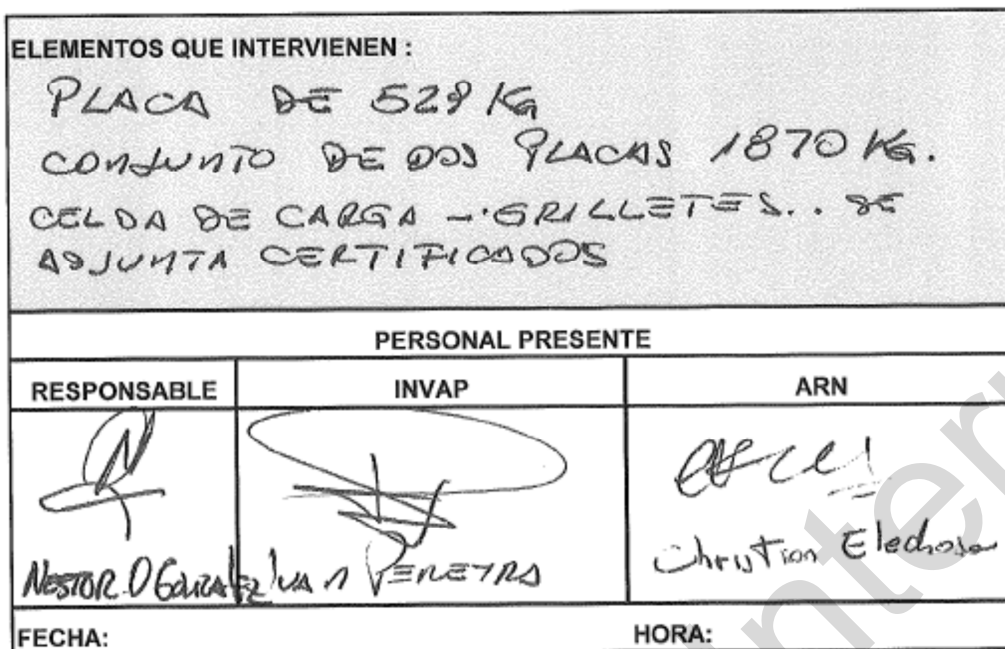 ELEMENTOS QUE INTERVIENEN :
PLACA DE 528 KG
CONJUNTO DE DOS PLACAS 1870 KG.
CELDA DE CARGA - GRILLETES.. SE
ADJUNTA CERTIFICADOS
PERSONAL PRESENTE
RESPONSABLE INVAP ARN
NESTOR D GONZALEZ JUAN PEREYRA Christian Elechosa
FECHA: HORA: